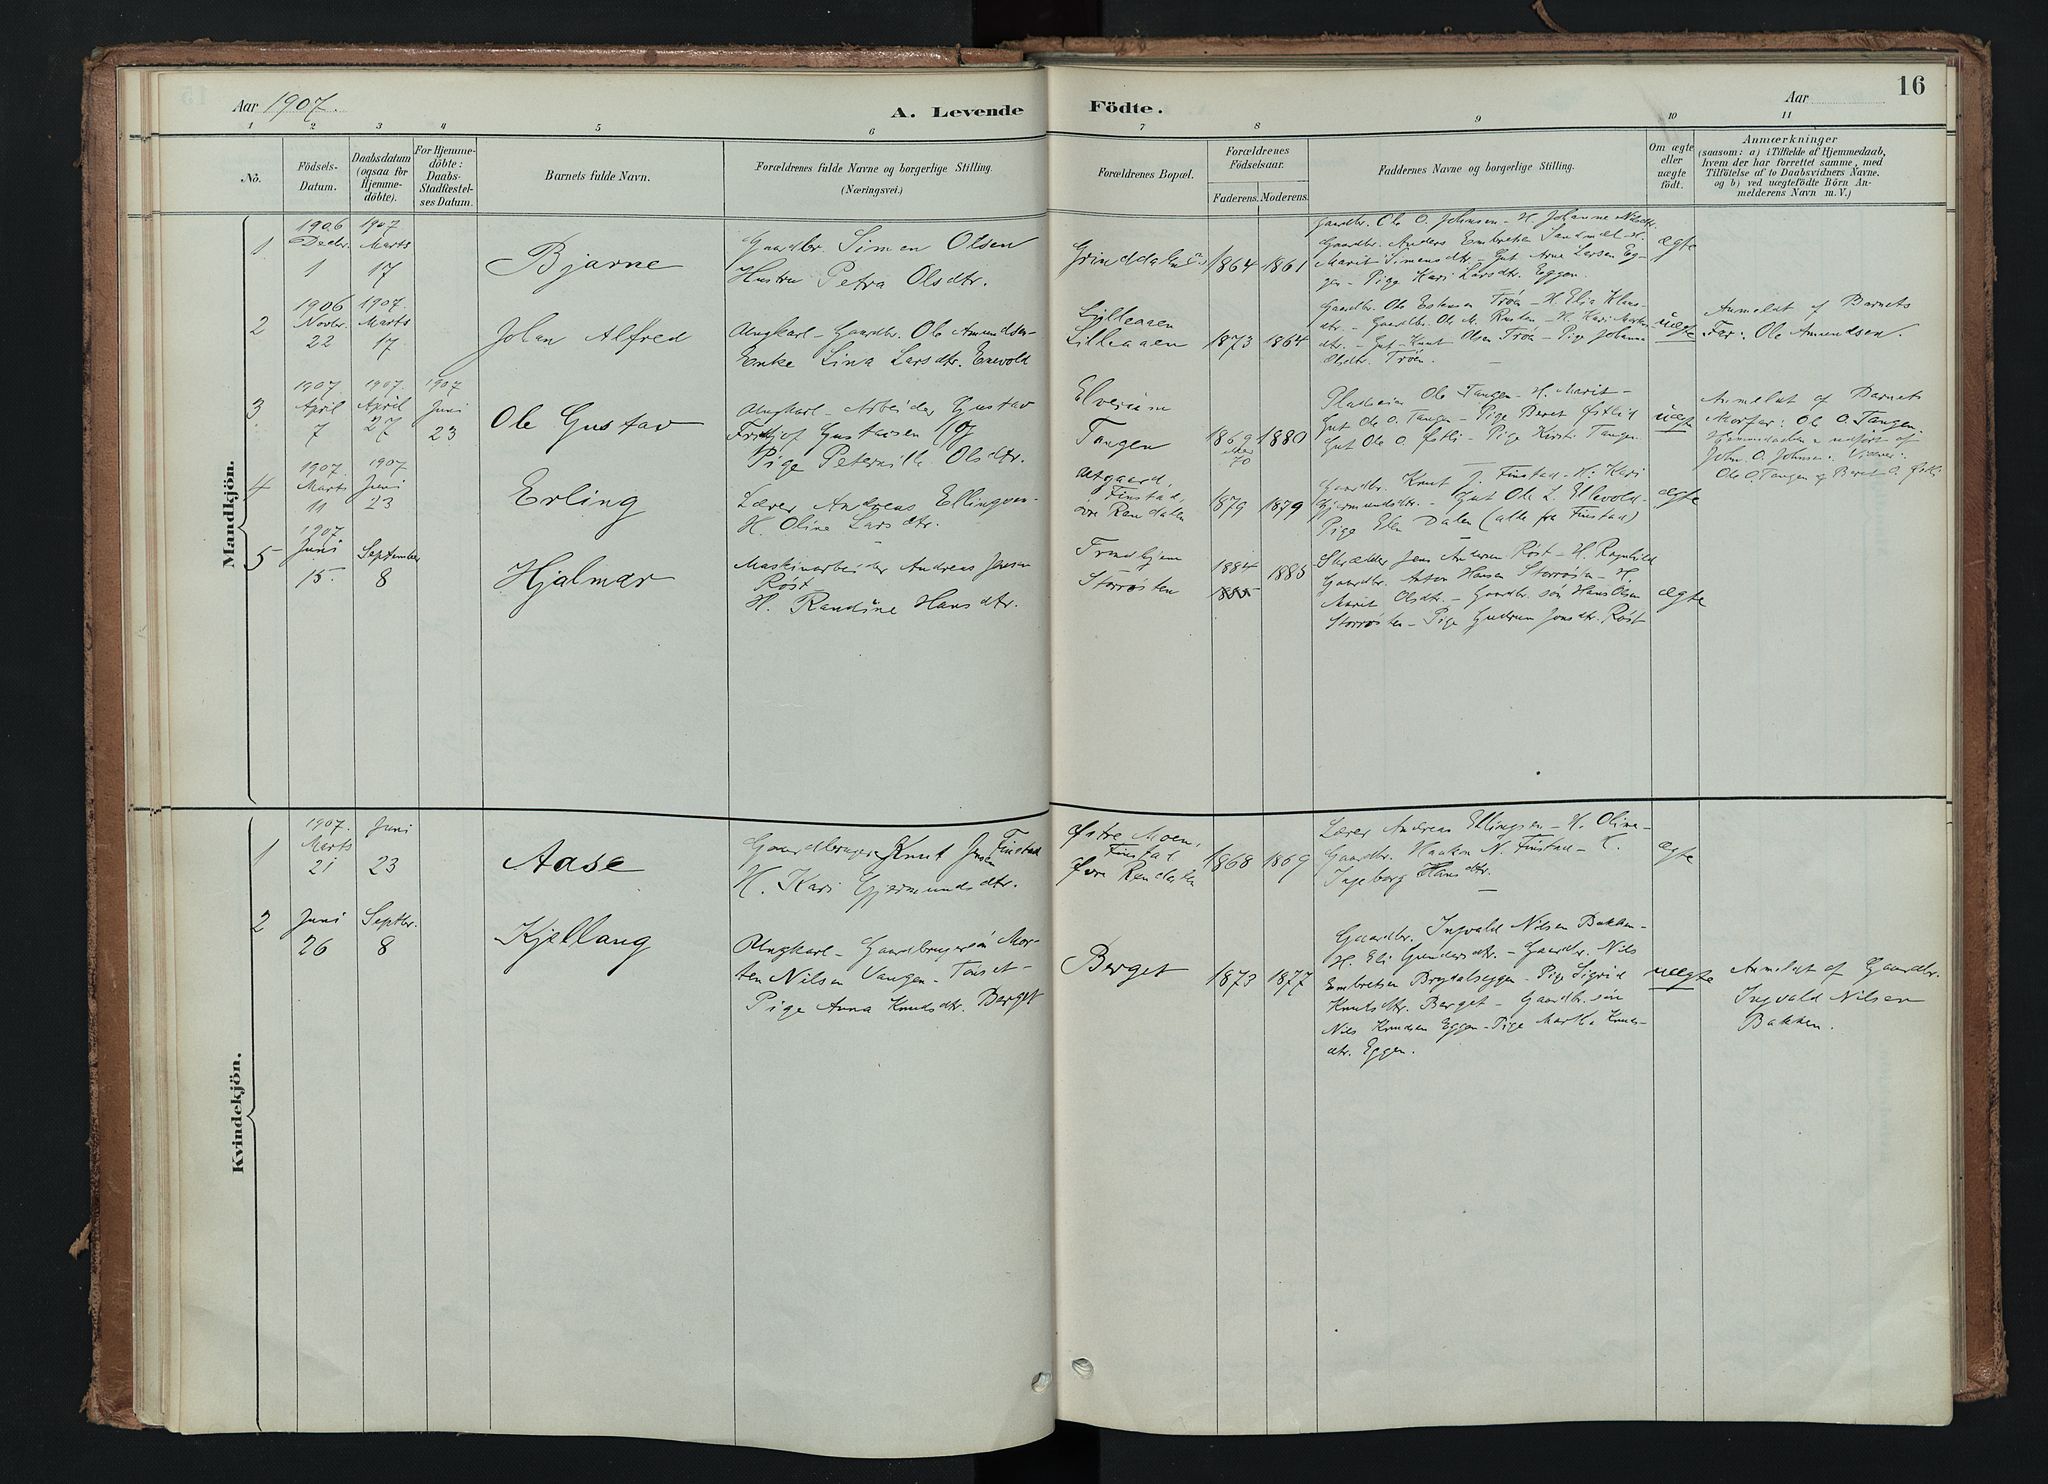 Aar 1907.
A. Levende
Födte.
Aar
16
1 2 3 4 5 6 7 8 9 10 11
No.
Födsels-
Datum.
Daabsdatum
(ogsaa for
Hjemme-
döbte).
For Hjemme-
döbte:
Daabs-
Stadfæstel-
ses Datum.
Barnets fulde Navn.
Forældrenes fulde Navne og borgerlige Stilling.
(Næringsvei.)
Forældrenes Bopæl.
Forældrenes
Födselsaar.
Faderens.
Moderens.
Faddernes Navne og borgerlige Stilling.
Om ægte
eller
uægte
födt.
Anmærkninger
(saasom: a) i Tilfælde af Hjemmedaab,
hvem der har forrettet samme, med
Tilföielse af to Daabsvidners Navne.
og b) ved uægtefödte Börn An-
melderens Navn m.V.)
Mandkjön.
1
1906
Decbr.
1
1907
Marts
17
Bjarne
Gaardbr Simen Olsen
Hustru Petra Olsdtr.
Grinddalen
1864
1861
Gaardbr. Ole O. Johnsen - H. Johanne Nilsdtr.
Gaardbr. Anders Embretsen Sandmæl - H.
Marit Simensdtr - Gut Arne Larsen Eg-
gen - Pige Kari Larsdtr. Eggen.
ægte
2
1906
Novbr.
22
1907.
Marts
17
Johan Alfred
Ungkarl - Gaardbr. Ole Amundsen -
Enke Lina Larsdtr. Enevold
Lilleaaen
Lilleaaen
1873
1864
Gaardbr. Ole Trøen - H. Elia Klaus-
dtr. - Gaardbr. Ole M. Rusten - H. Kari
dtr. - Gut Knut Olsen Trøen - Pige Johanna
Olsdtr. Trøen.
uægte
Anmeldt af Barnets
Far: Ole Amundsen.
3
1907
April
7
1907.
April
27
1907
Juni
23
Ole Gustav
Ungkarl - Arbeider Gustav
Fridtjof Gustavsen og
Pige Peternille Olsdtr.
Elverum
Tangen
1869
eller
70
1880
Ole Tangen - H. Marit -
Gut Ole O. Tangen - Pige Beret Østli
Gut Ole O. Østli - Pige Kirsti Tangen
uægte
Anmeldt af Barnets
Morfar: Ole O. Tangen.
Hjemmedaaben udført af
John O. Johnsen.
Ole O. Tangen og Beret O. Østli
4
1907.
Marts
11
1907
Juni
23
Erling
Lærer Andreas Ellingsen -
H. Oline Larsdtr.
Utgaard,
Finstad,
øvre Rendalen
1879
1879
Gaardbr. Knut J. Finstad - H. Kari
Gjermundsdtr. - Gut Ole L. Ellevold -
Pige Elen Dalen (alle fra Finstad)
ægte
5
1907
Juni
15.
September
8
Hjalmar
Maskinarbeider Andreas Jensen
Røst
H. Randine Hansdtr.
Trondhjem
Storrøsten
1884
1885
Skrædder Jens Andersen Røst - H. Ragnhild
Gaardbr. Anton Hansen Storrøsten - H.
Marit Olsdtr. - Gaardbr. søn Hans Olsen
Storrøsten - Pige Gudrun Jensdtr. Røst
ægte
Kvindekjön.
1
1907.
Marts
21
Juni
23
Aase
Gaardbruger Knut Jensen Finstad
H. Kari Gjermundsdtr.
Østre Moen,
Finstad
Øvre Rendalen
1868
1869
Lærer Andreas Ellingsen - H. Olina -
Gaardbr. Haakon N. Finstad - H.
Ingeborg Hansdtr.
ægte
2
Juni
26
Septbr.
8
Kjellaug
Ungkarl - Gaardbrugersøn Mor-
ten Nilsen Vangen - Tønset -
Pige Anna Knudsdtr. Berget
Berget
1873
1877
Gaardbr. Ingvald Nilsen Bakken -
H. Eli Gundersdtr - Gaardbr. Nils
Embretsen Brydalseggen - Pige Sigrid
Knudsdtr. Berget - Gaardbr. søn
Nils Knudsen Eggen - Pige Martha Knuds-
dtr. Eggen.
uægte
Anmeldt af Gaardbr.
Ingvald Nilsen
Bakken.